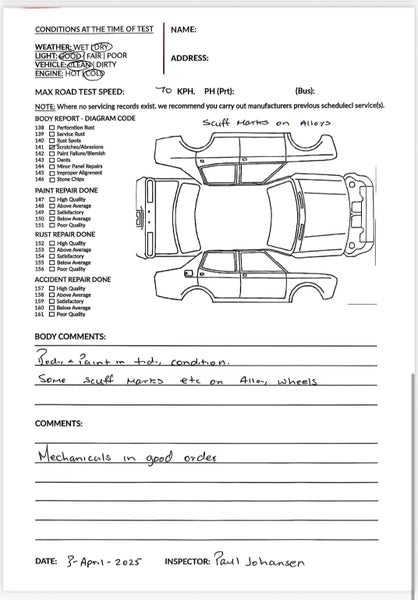 CONDITIONS AT THE TIME OF TEST
NAME:
WEATHER: WET | DRY
LIGHT: GOOD | FAIR | POOR
VEHICLE: CLEAN | DIRTY
ENGINE: HOT | COLD
ADDRESS:
MAX ROAD TEST SPEED: 70 KPH. PH (Prt): (Bus):
NOTE: Where no servicing records exist, we recommend you carry out manufacturers previous scheduled service(s).
BODY REPORT - DIAGRAM CODE
Scuff Marks on Alloys
138 Perforation Rust
139 Service Rust
140 Rust Spots
141 Scratches/Abrasions
142 Paint Failure/Blemish
143 Dents
144 Minor Panel Repairs
145 Improper Alignment
146 Stone Chips
PAINT REPAIR DONE
147 High Quality
148 Above Average
149 Satisfactory
150 Below Average
151 Poor Quality
RUST REPAIR DONE
152 High Quality
153 Above Average
154 Satisfactory
155 Below Average
156 Poor Quality
ACCIDENT REPAIR DONE
157 High Quality
158 Above Average
159 Satisfactory
160 Below Average
161 Poor Quality
BODY COMMENTS:
Body & Paint in tidy condition.
Some scuff marks etc on Alloy wheels
COMMENTS:
Mechanicals in good order
DATE: 3-April-2025 INSPECTOR: Paul Johansen